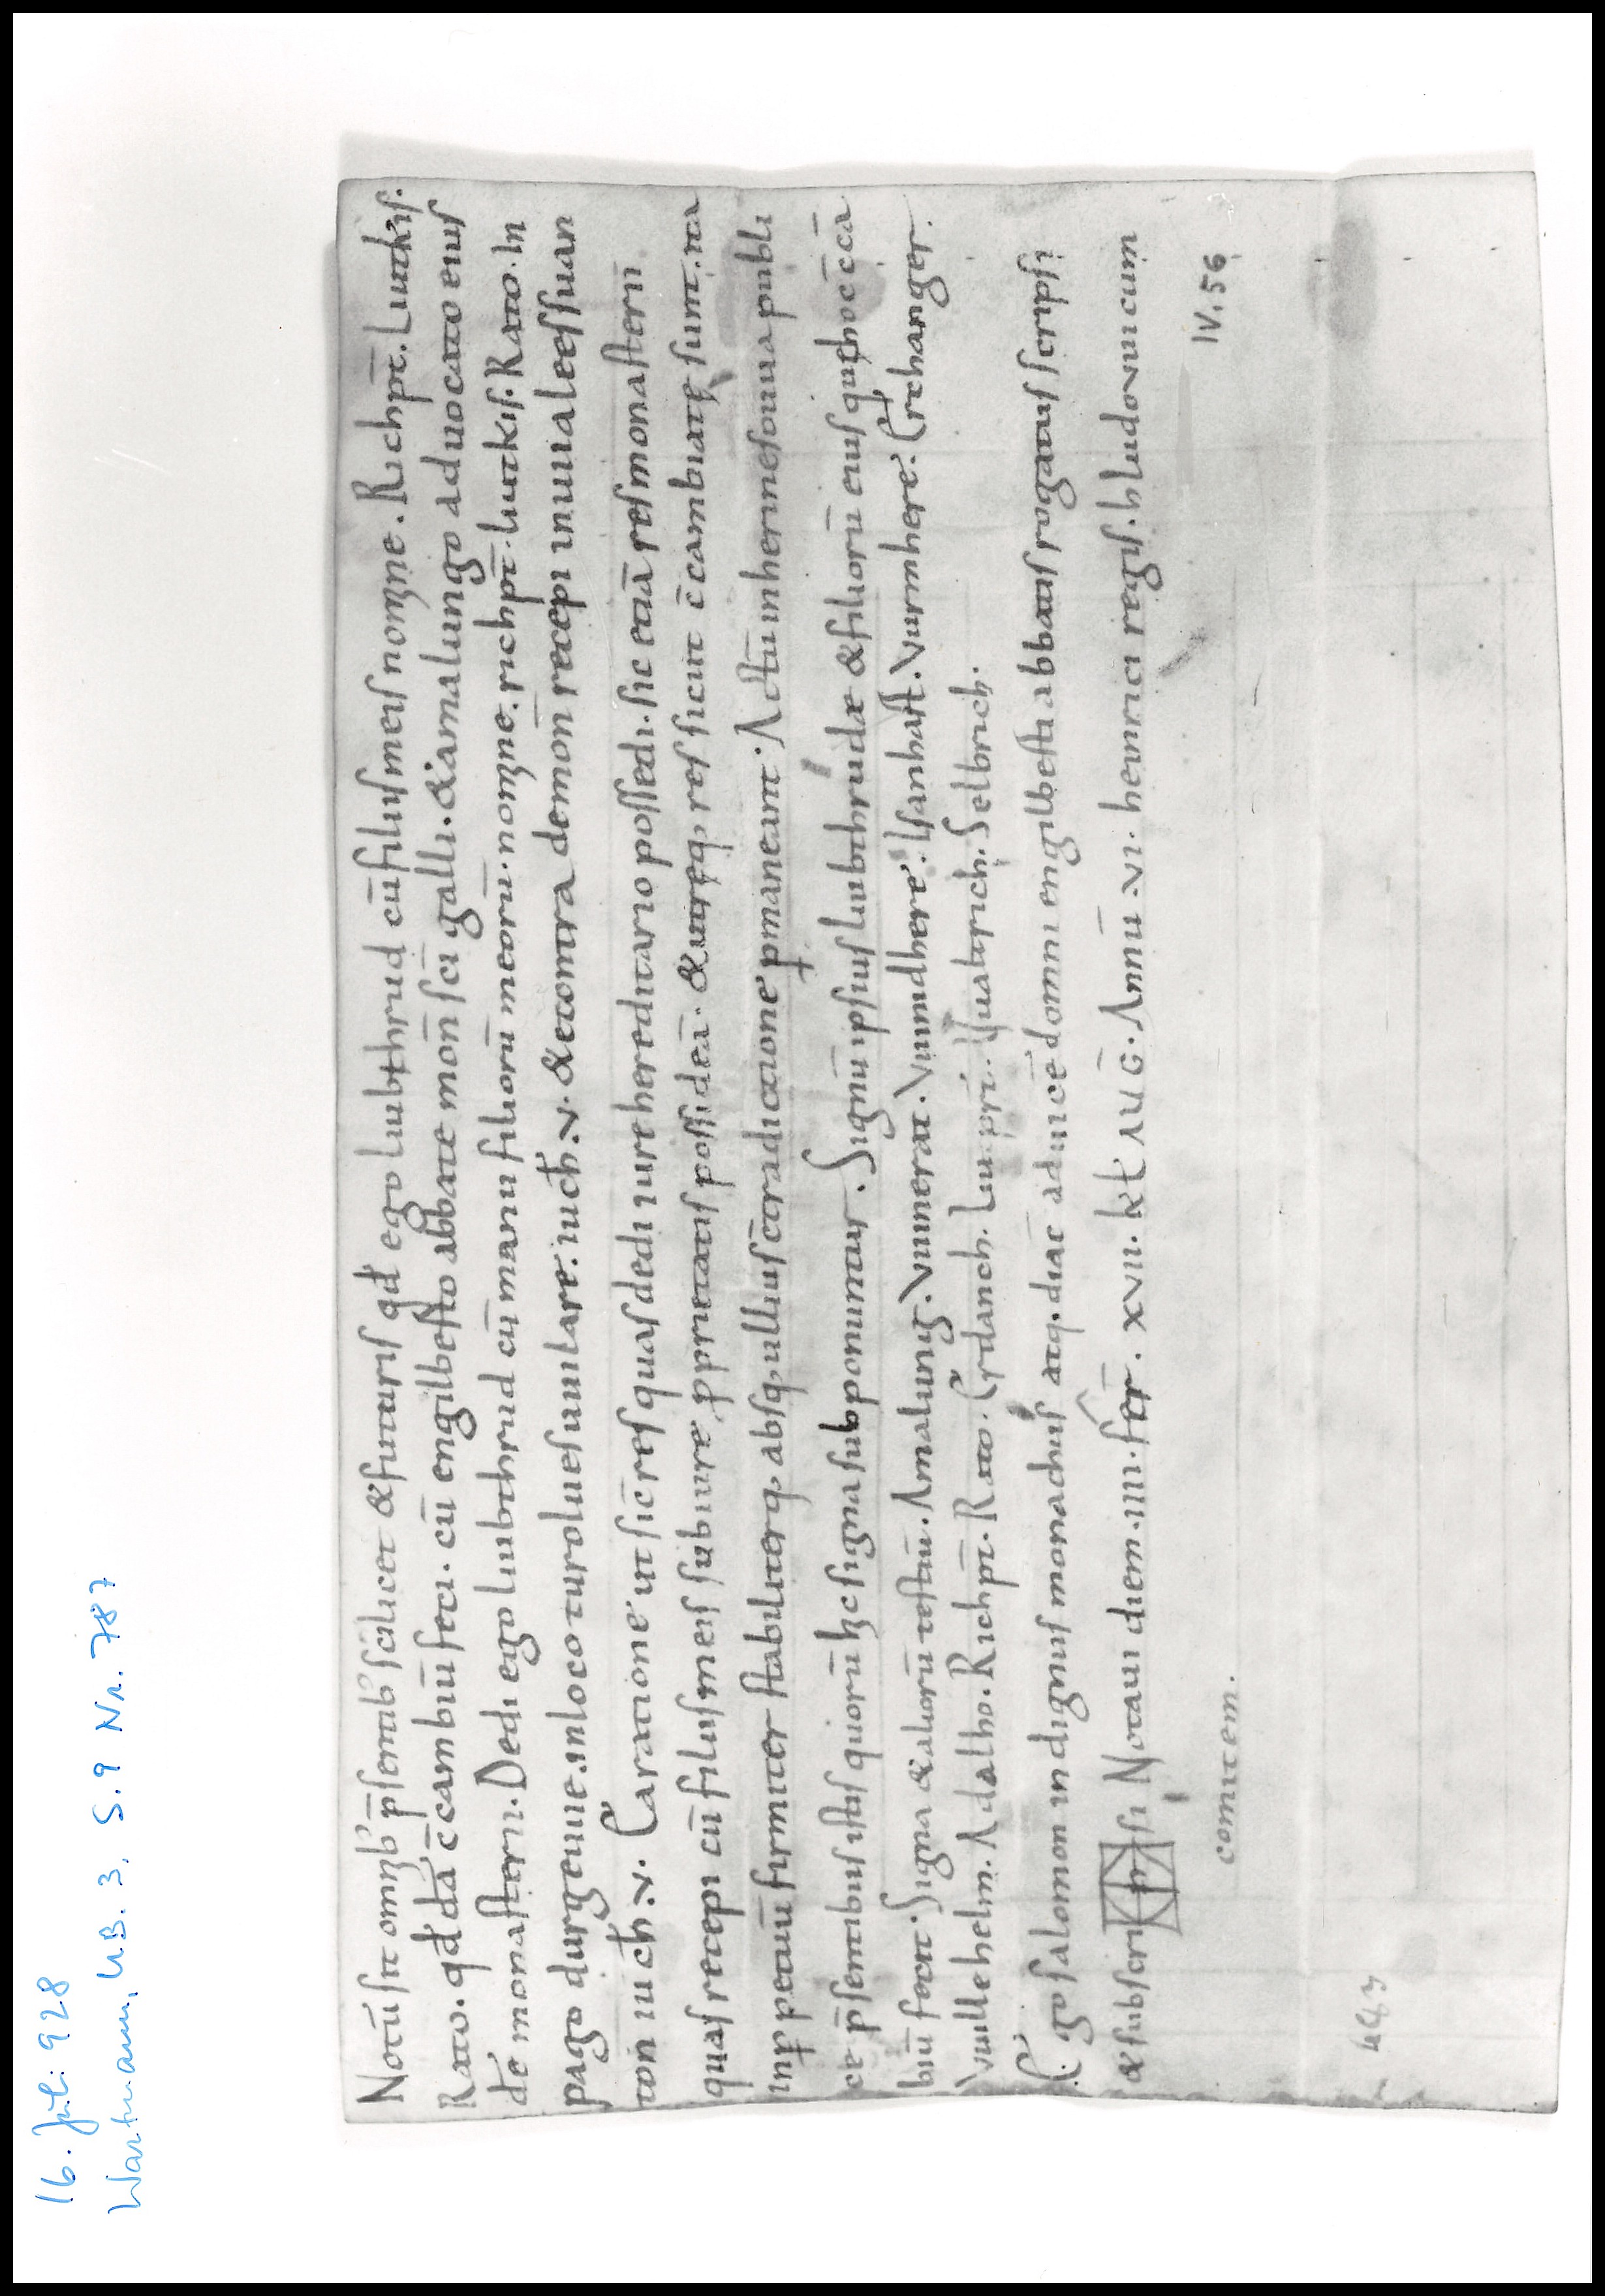 16. Juli 928
Wartmann, UB. 3, S. 9 Nr. 787
Notū sit omīb; p̄sentib; scilicet & futuris qđ ego liubthrud cū filiis meis nomīne. Richpt̄. Liutkis.
Rato. qđ dā c̄cambiū feci. cū engilberto abbate mon̄ sc̄i galli. & amalungo aduocato eius
dē monasterii. Dedi ego liubthrud cū manu filiorū meorū. nomīne. richpt̄. liutkis. Rato. In
pago durgeuue. in loco turoluesuuilare. iuch̄. v. & econtra de mon̄ recepi in uuialeessuan
ton iuch̄. v. Ea ratione ut sic̄ res quas dedi iure hereditario possedi. sic etiā res monasterii
quas recepi cū filiis meis sub iure ꝓprietatis possideā. & utreq. res sicut c̄cambiate sunt. ita
inꝑpetuū firmiter stabiliterq. absq. ullius c̄tradictione ꝑmaneant. Actū in herinesouua publi
ce p̄sentibus istis quorū hīc signa subponuntur. Signū ipsius liubthrudæ & filiorū eius qui hoc c̄cā
biū fecer̄. Signa & aliorū testiū. Amalung. Vuinerat. Vuindhere. Isanhart. Vurmhere. Erchanger.
Vuillehelm. Adalho. Richpt̄. Rato. Erdanch. Liu pri. Vualtrich. Selbrich.
Ego salomon indignus monachus atq. diac̄ ad uicē domni engilberti abbatis rogatus scripsi
& subscripsi Notaui diem. IIII. fer̄. XVII. kł AUG. Annū. VI. heinrici regis. hludouuicum
comitem.
IV. 56
483